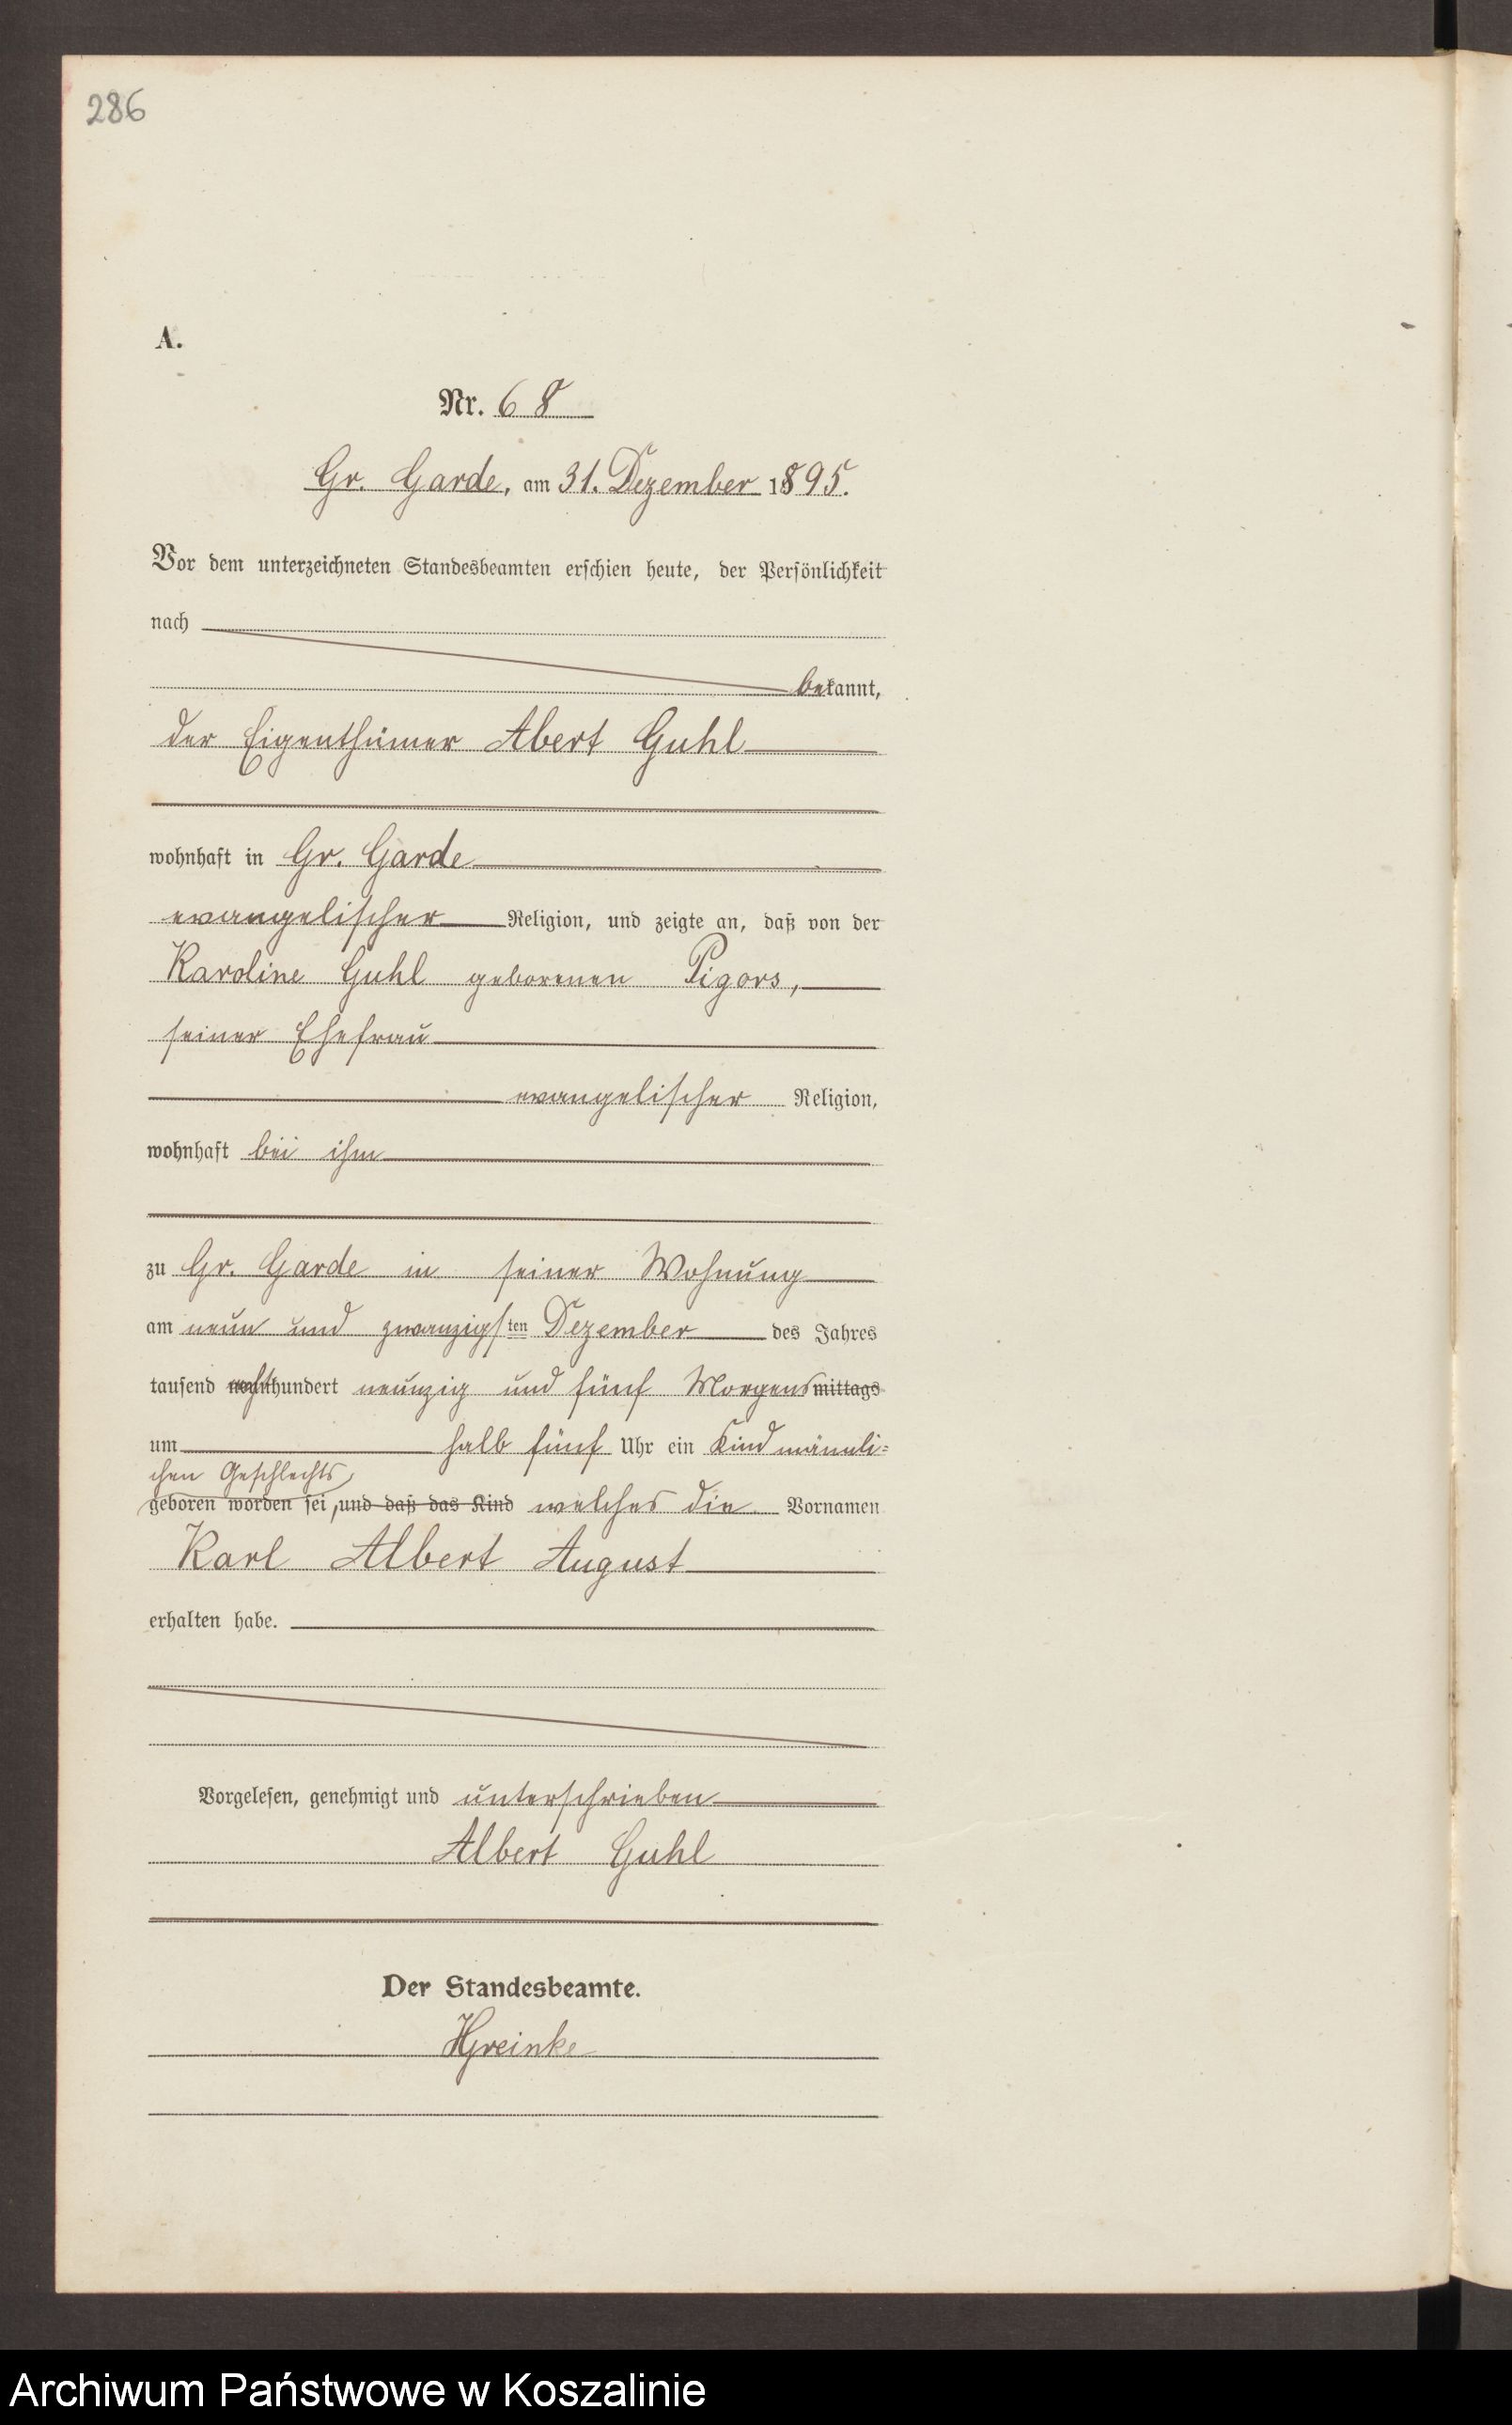 286
A.
Nr. 68
Gr. Garde, am 31. Dezember 1895.
Vor dem unterzeichneten Standesbeamten erschien heute, der Persönlichkeit
nach
bekannt,
der Eigenthümer Abert Guhl
wohnhaft in Gr. Garde
evangelischer Religion, und zeigte an, daß von der
Karoline Guhl geborenen Pigors,
seiner Ehefrau
evangelischer Religion,
wohnhaft bei ihm
zu Gr. Garde in seiner Wohnung
am neun und zwanzigsten Dezember des Jahres
tausend achthundert neunzig und fünf Morgens mittags
um halb fünf Uhr ein Kind männli=
chen Geschlechts
geboren worden sei, und daß das Kind welches die Vornamen
Karl Albert August
erhalten habe.
Vorgelesen, genehmigt und unterschrieben
Albert Guhl
Der Standesbeamte.
Archiwum Państwowe w Koszalinie